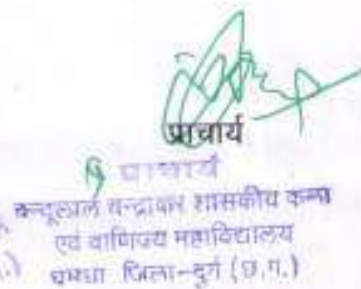 प्राचार्य
प्राचार्य
चन्दूलाल चन्द्राकर शासकीय कला
एवं वाणिज्य महाविद्यालय
धमधा जिला-दुर्ग (छ.ग.)